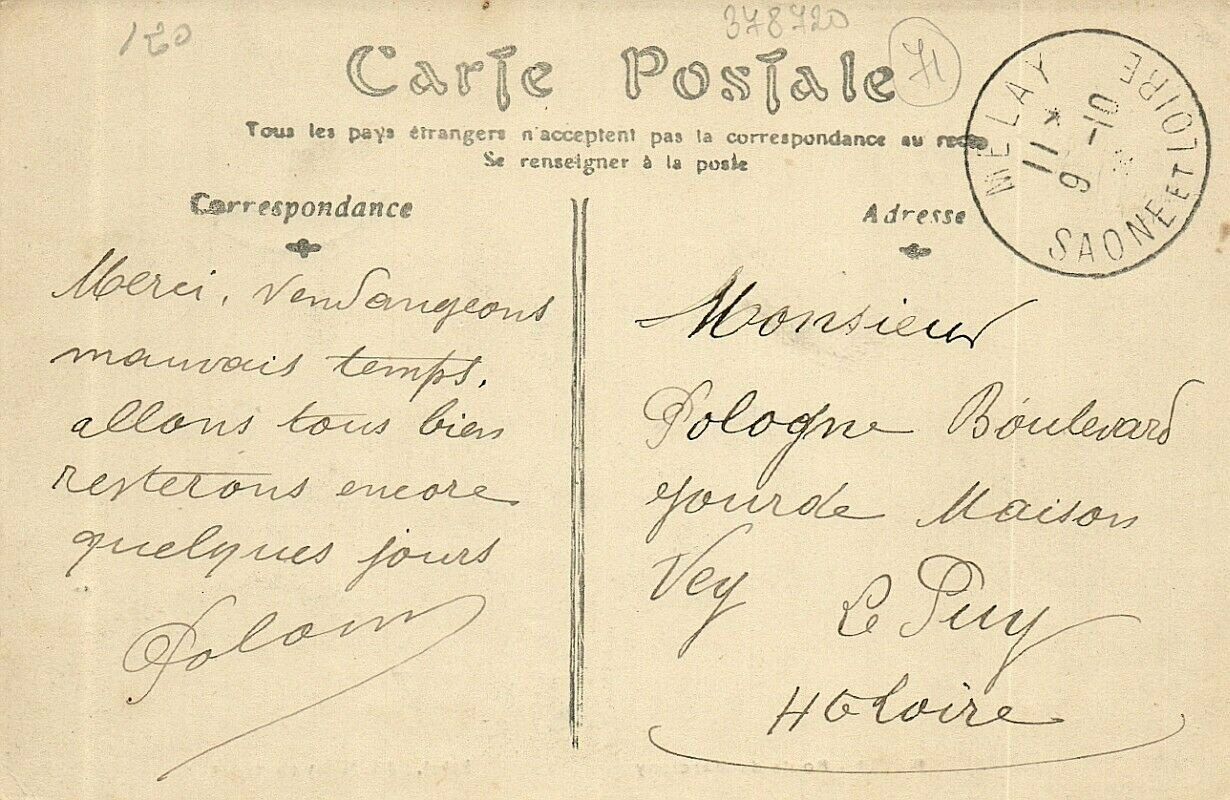 120
378720
71
Carte Postale
Tous les pays étrangers n'acceptent pas la correspondance au recto
Se renseigner à la poste
MELAY
SAONE ET LOIRE
11 *
9 -10
Correspondance
Merci, vendangeons
mauvais temps,
allons tous bien
resterons encore
quelques jours
Adresse
Monsieur
Pologne Boulevard
Jourde Maison
Vey
Le Puy
Hte Loire